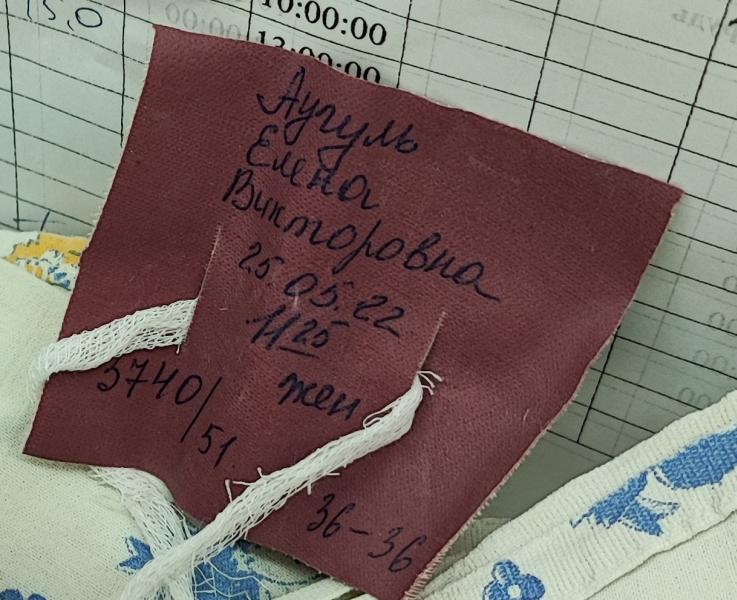 15,0
10:00:00
13:00:00
Аугуль
Елена
Викторовна
25.05.22
11 25
жен
3740/51
36-36